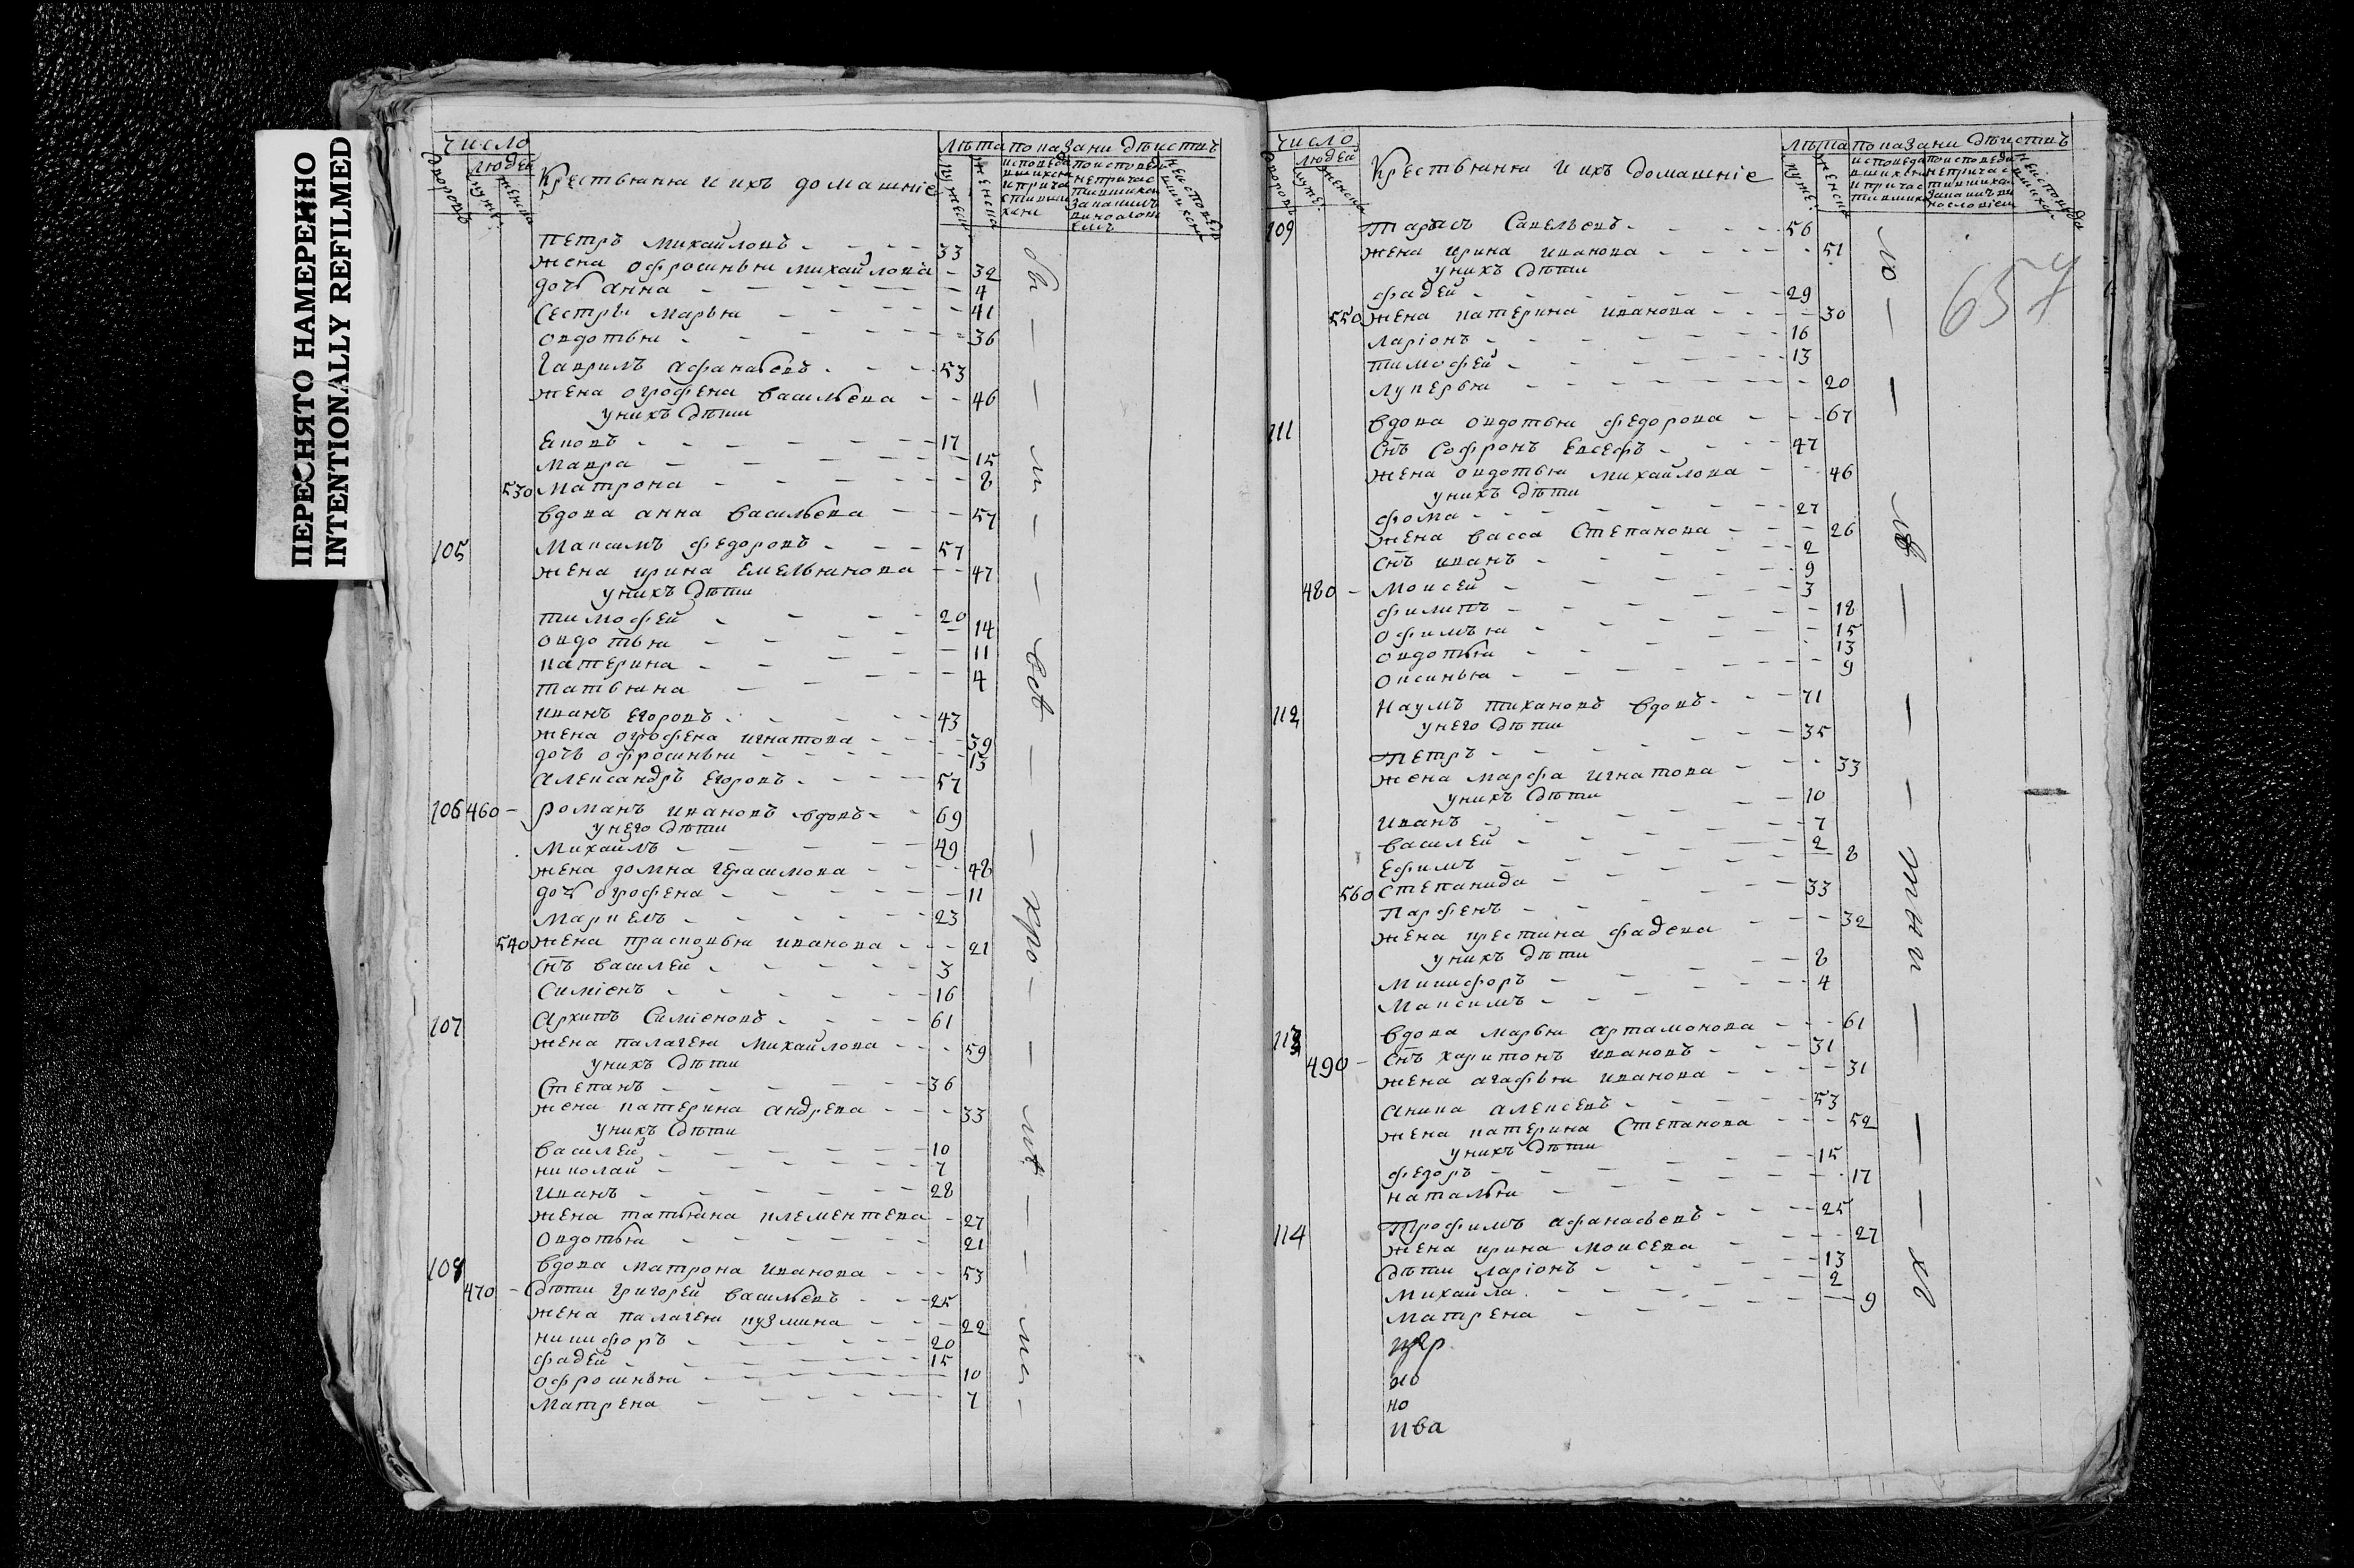 ПЕРЕСНЯТО НАМЕРЕННО
INTENTIONALLY REFILMED
число
людей
дворовъ
мужес
женска
Крестьяня и ихъ домашніе
лѣта
мужеска
женска
показани дѣиствъ
Петръ Михайловъ 33
жена Офросинья Михайлова 32
дочь Анна 4
Сестры Марья 41
Овдотья 36
Гаврилъ Афанасьевъ 53
жена Огрофена Васильева 46
у нихъ дѣти
Яковъ 17
Мавра 15
530 Матрона 8
вдова Анна Васильева 57
105 Максимъ Федоровъ 57
жена Ирина Емельянова 47
у нихъ дѣти
Тимофей 20
Овдотья 14
Катерина 11
Татьяна 4
Иванъ Егоровъ 43
жена Огрофена Игнатова 39
дочь Офросинья 13
Александръ Егоровъ 57
106 460 Романъ Ивановъ вдовъ 69
у него дѣти
Михаилъ 49
жена Домна Герасимова 48
дочь Огрофена 11
Маркелъ 23
540 жена Прасковья Иванова 21
сынъ Василей 3
Симіонъ 16
107 Архипъ Симіоновъ 61
жена Палагея Михаилова 59
у нихъ дѣти
Степанъ 36
жена Катерина Андрева 33
у нихъ дѣти
Василей 10
Николай 7
Иванъ 28
жена Татьяна Клементева 27
Овдотья 21
108 вдова Матрона Иванова 53
470 дѣти Григорей Васильевъ 25
жена Палагея Кузмина 22
Никифоръ 20
Фадей 15
Офросинья 10
Матрена 7
число
людей
дворовъ
мужес
женска
Крестьяня и ихъ домашніе
лѣта
муже
женска
показани дѣиствъ
657
109 Тарасъ Савельевъ 56
жена Ирина Иванова 51
у нихъ дѣти
Фадей 29
550 жена Катерина Иванова 30
Ларіонъ 16
Тимофей 13
Лукерья 20
111 вдова Овдотья Федорова 67
снъ Софронъ Евсефъ 47
жена Овдотья Михайлова 46
у нихъ дѣти
Фома 27
жена Васса Степанова 26
снъ Иванъ 2
480 Моисей 9
Филипъ 3
Офимъя 18
Овдотья 15
Оксинья 13
9
112 Наумъ Тихановъ вдовъ 71
у него дѣти
Петръ 35
жена Марфа Игнатова 33
у нихъ дѣти
Иванъ 10
Василей 7
Ефимъ 2
560 Степанида 8
Парфенъ 33
жена Крестина Фадева 32
у нихъ дѣти
Микифоръ 8
Максимъ 4
113 вдова Марья Артамонова 61
490 снъ Харитонъ Ивановъ 31
жена Агафья Иванова 31
Аника Алексевъ 53
жена Катерина Степанова 52
у нихъ дѣти
Федоръ 15
Наталья 17
114 Трофимъ Афанасьевъ 25
жена Ирина Моисева 27
дѣти Ларіонъ 13
Михайла 2
Матрена 9
но
ива